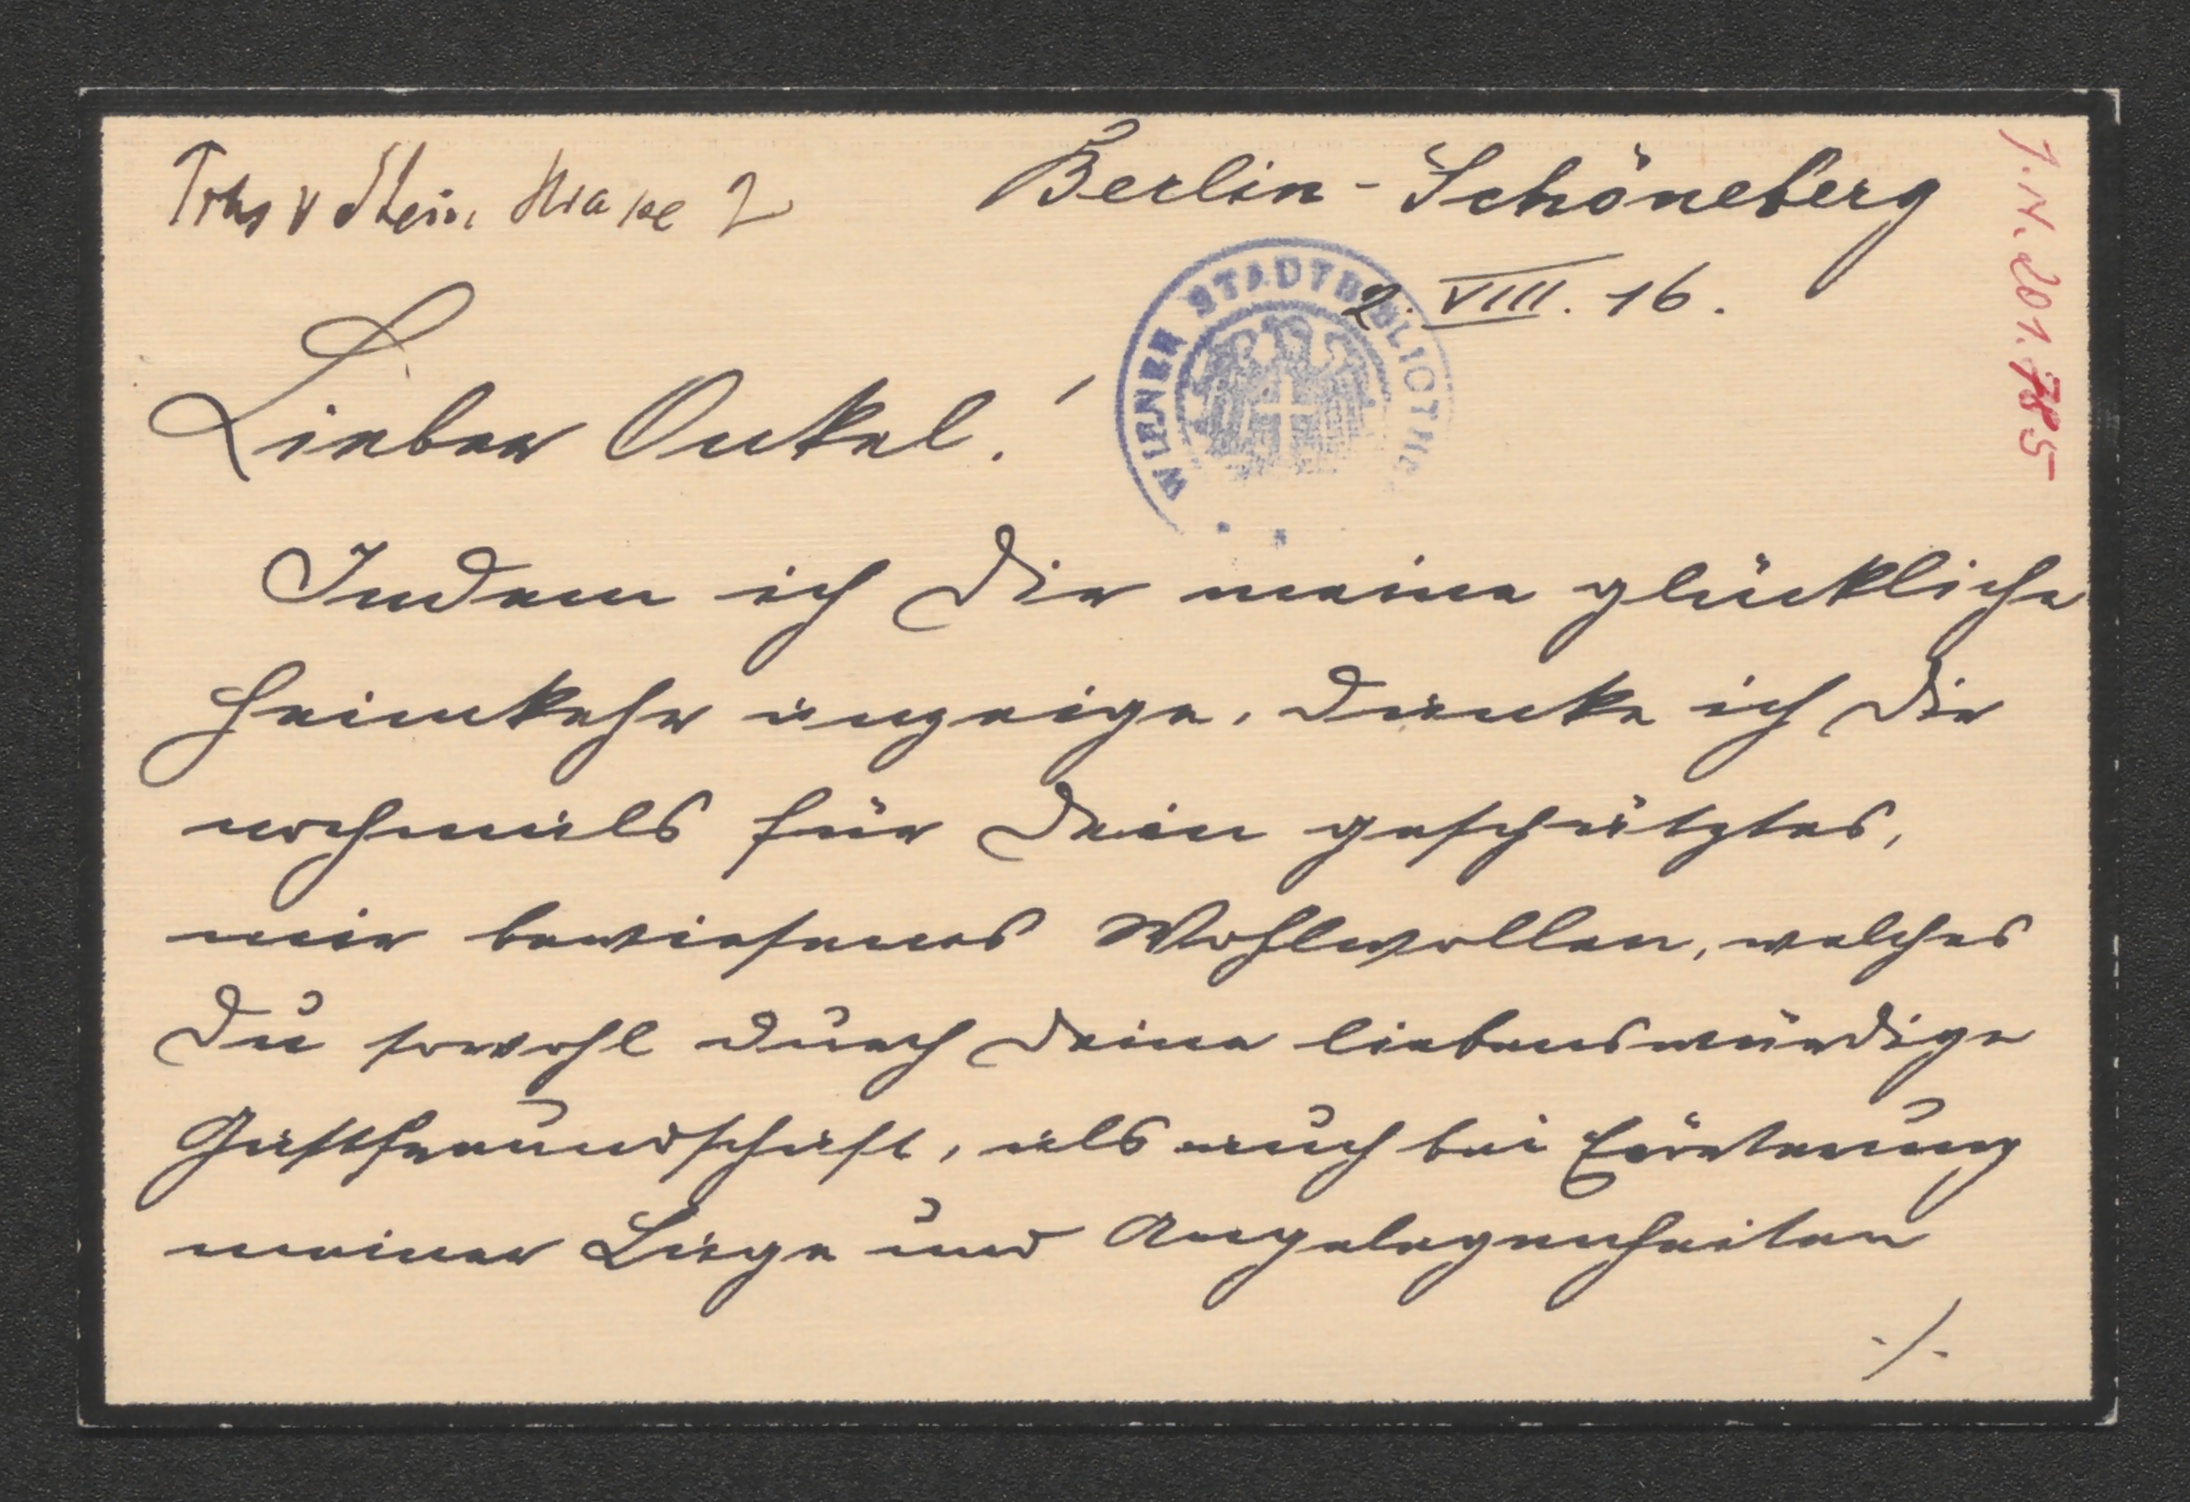 Frhr v Stein Strasse 2
Berlin-Schöneberg
2. VIII. 16.
J.N. 201.785
WIENER STADTBIBLIOTHEK
Lieber Onkel!
Indem ich Dir meine glückliche
Heimkehr anzeige, danke ich Dir
nochmals für Dein geschätztes,
mir bewiesenes Wohlwollen, welches
Du sowohl durch Deine liebenswürdige
Gastfreundschaft, als auch bei Erörterung
meiner Lage und Angelegenheiten
./.